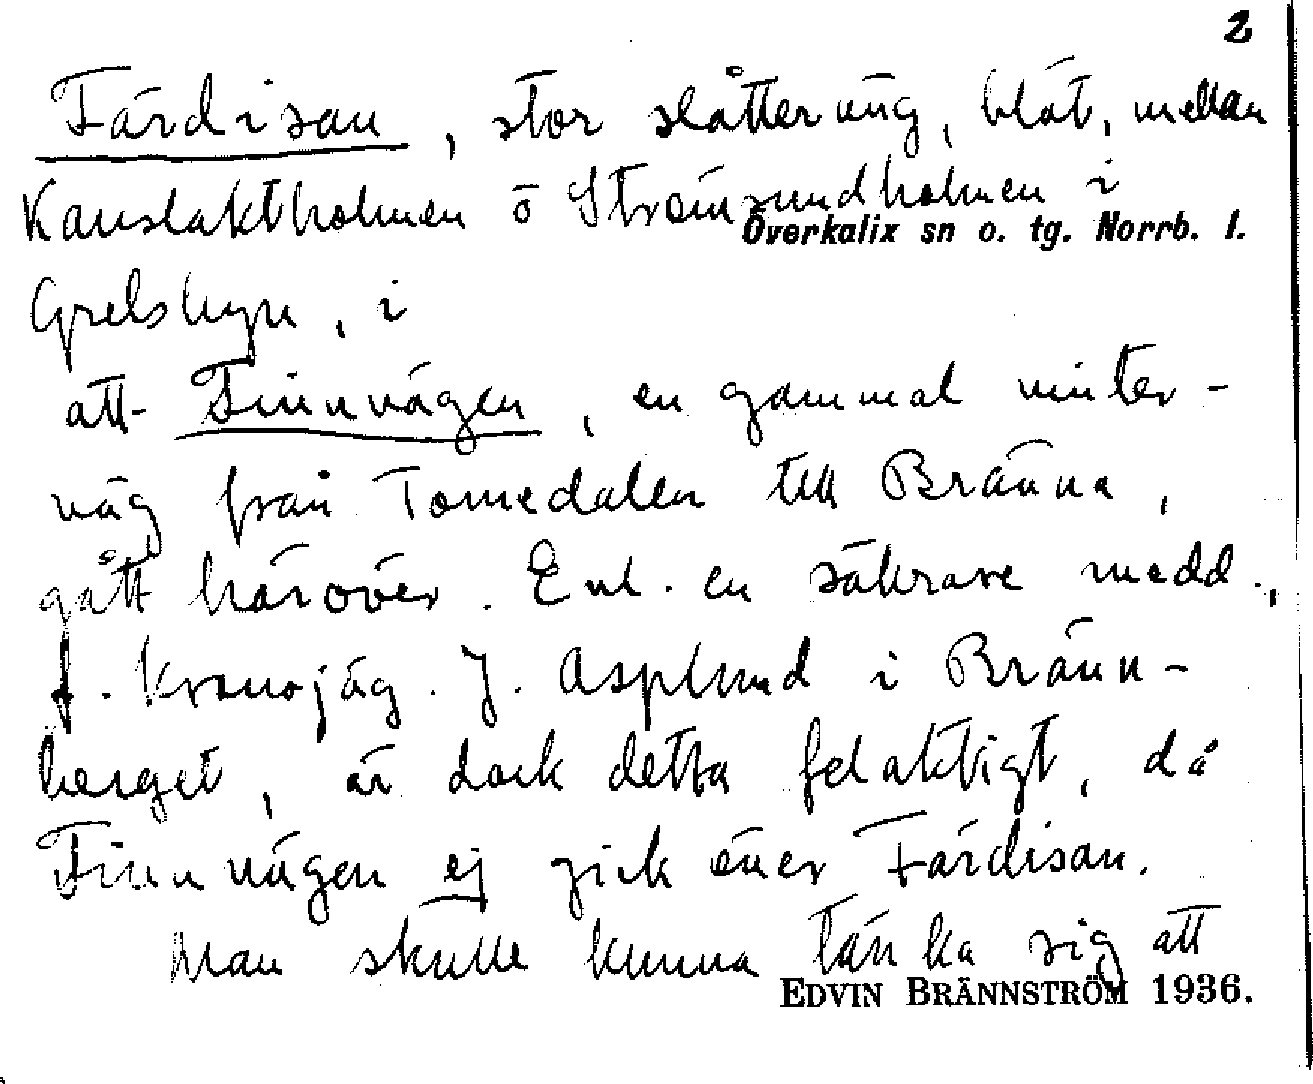 2
Färdisan, stor slåtteräng, blöt, mellan
Kanslaktholmen ō Strömsundholmen i
Överkalix sn o. tg. Norrb. l.
Grelsbyn, i
att Finnvägen, en gammal vinter-
väg från Tornedalen till Bränna,
gått häröver. Enl. en säkrare medd.,
f. kronojäg. J. Asplund i Bränn-
berget, är dock detta felaktigt, då
Finnvägen ej gick över Färdisan.
Man skulle kunna tänka sig att
EDVIN BRÄNNSTRÖM 1936.